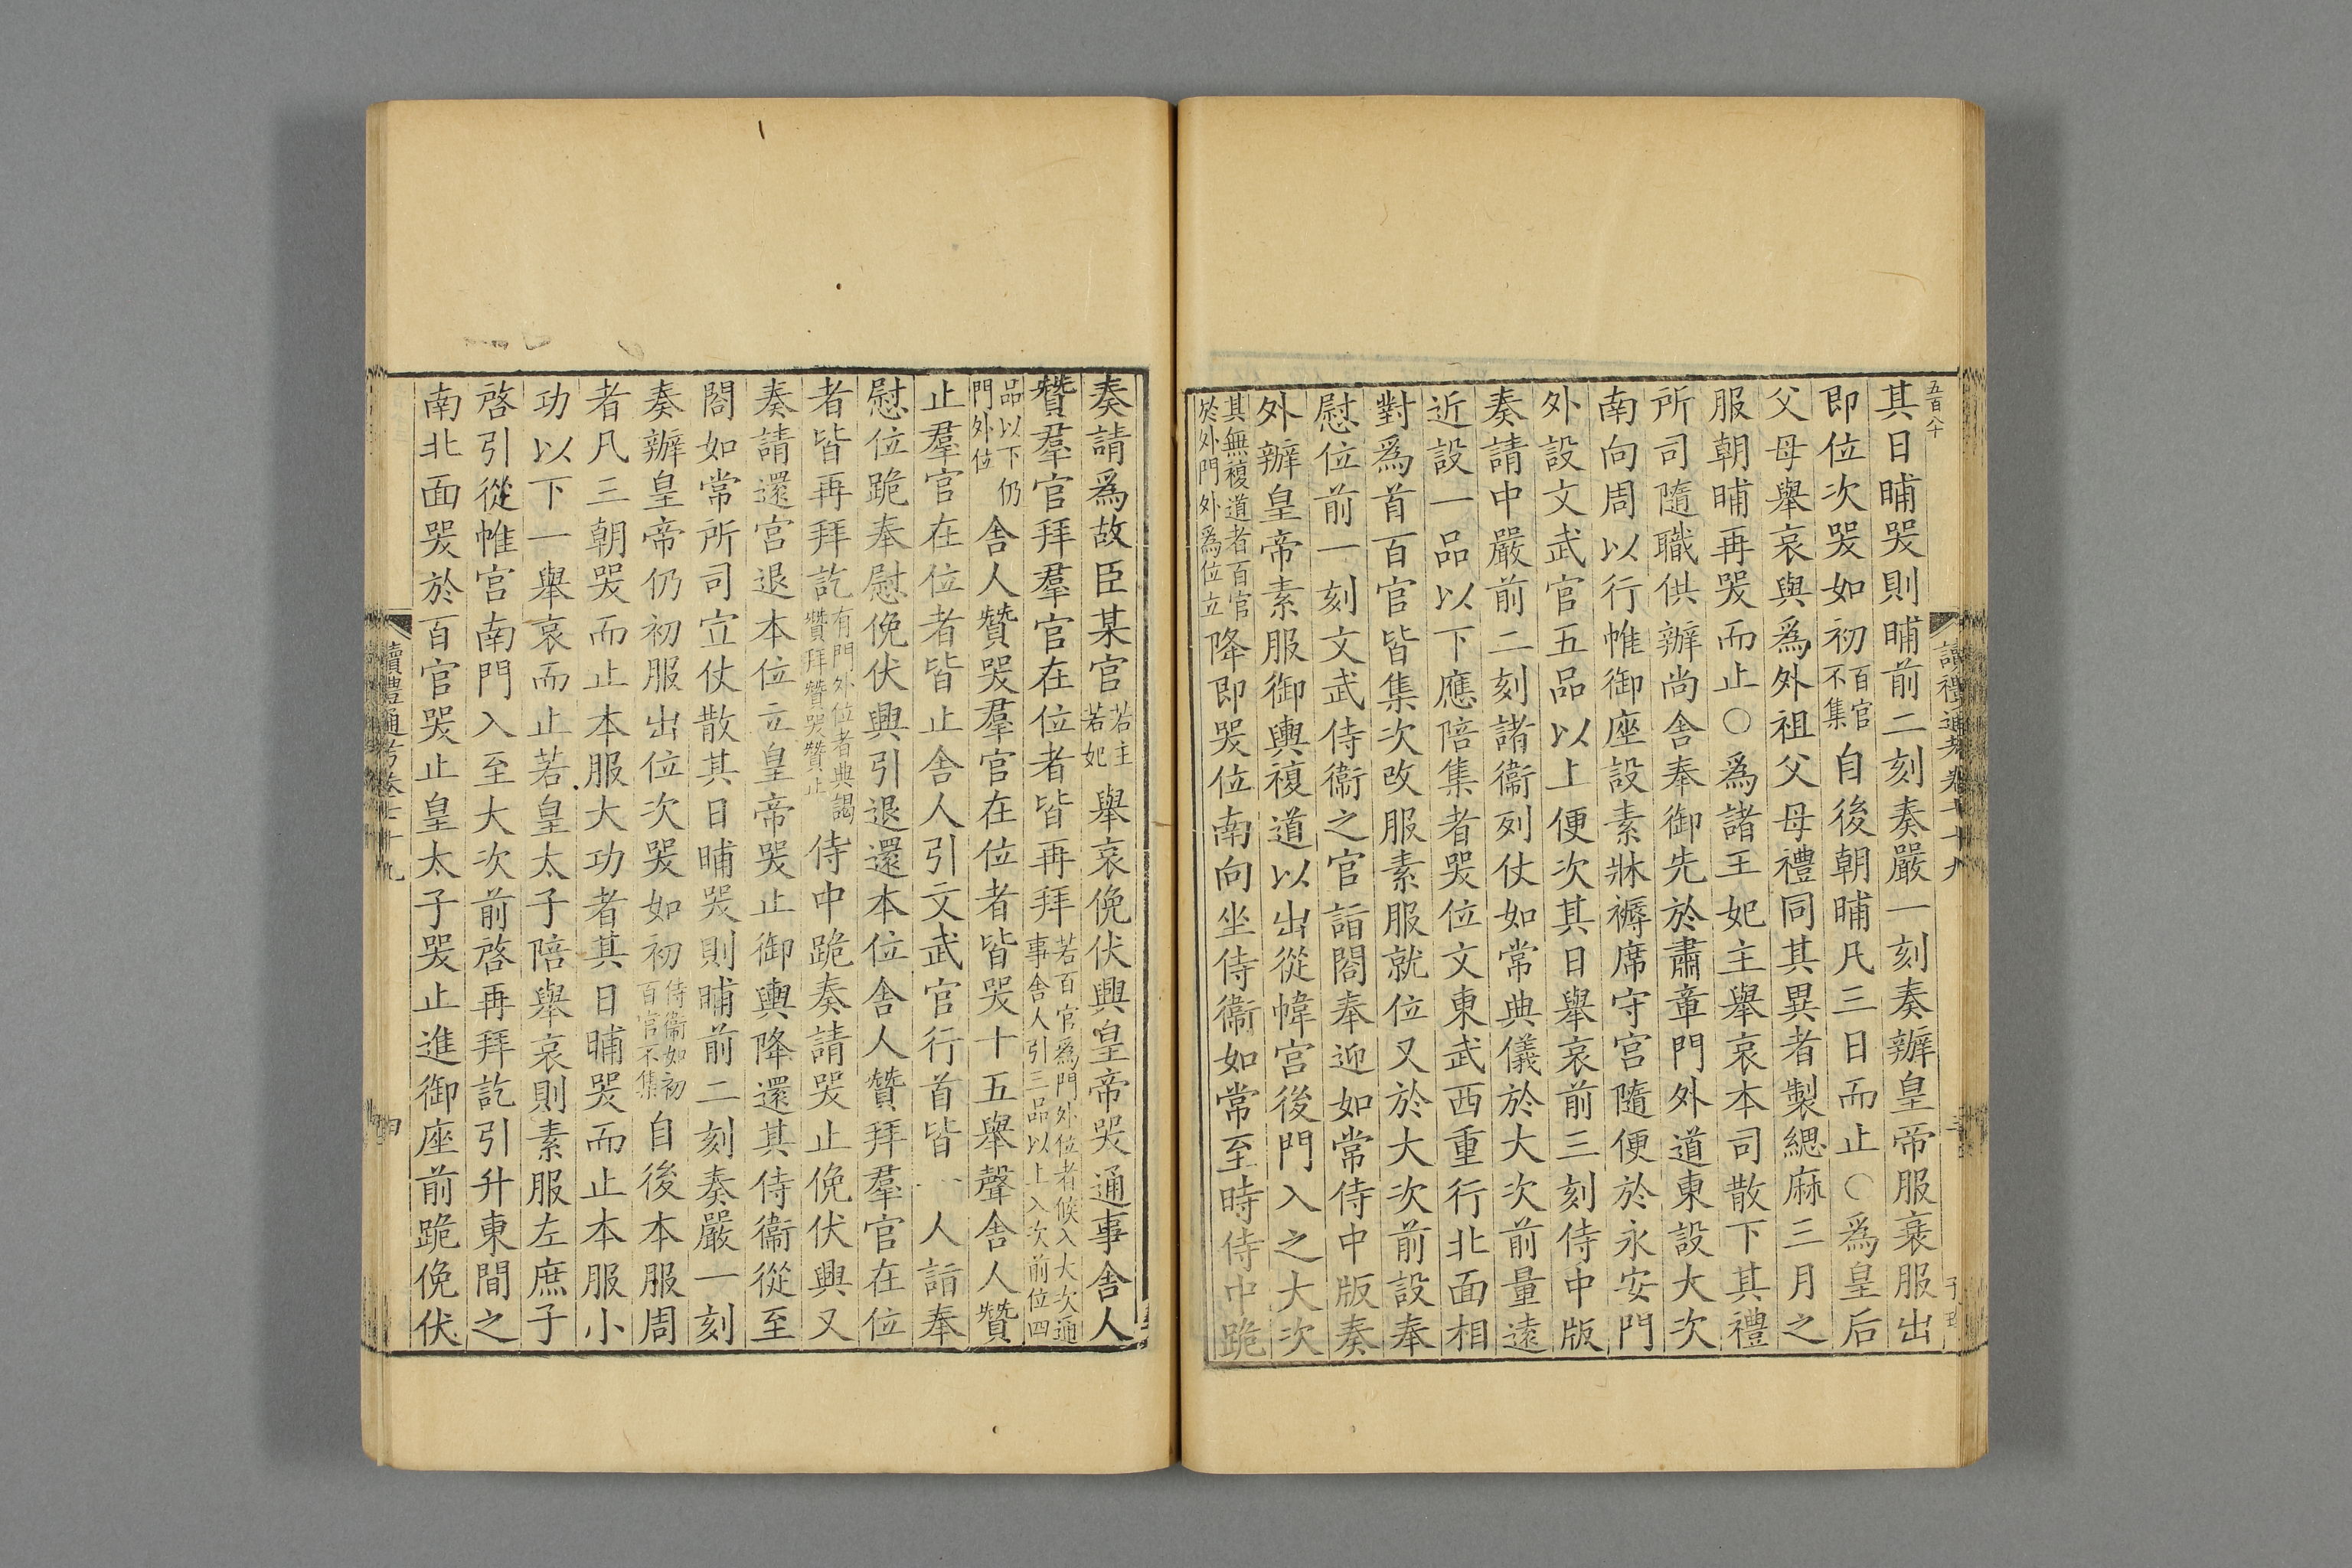 五百八十
其日晡哭則晡前二刻奏嚴一刻奏辦皇帝服衰服出
即位次哭如初百官不集自後朝晡凡三日而止○爲皇后
父母舉哀與爲外祖父母禮同其異者製緦麻三月之
服朝晡再哭而止○爲諸王妃主舉哀本司散下其禮
所司隨職供辦尚舍奉御先於肅章門外道東設大次
南向周以行帷御座設素牀褥席守宮隨便於永安門
外設文武官五品以上便次其日舉哀前三刻侍中版
奏請中嚴前二刻諸衞列仗如常典儀於大次前量遠
近設一品以下應陪集者哭位文東武西重行北面相
對爲首百官皆集次改服素服就位又於大次前設奉
慰位前一刻文武侍衞之官詣閤奉迎如常侍中版奏
外辦皇帝素服御輿複道以出從幃宮後門入之大次
其無複道者百官於外門外爲位立降即哭位南向坐侍衞如常至時侍中跪
讀禮通考卷七十九
奏請爲故臣某官若主若妃舉哀俛伏興皇帝哭通事舍人
贊羣官拜羣官在位者皆再拜若百官爲門外位者候入大次通事舍人引三品以上入次前位四
品以下仍門外位舍人贊哭羣官在位者皆哭十五舉聲舍人贊
止羣官在位者皆止舍人引文武官行首皆一人詣奉
慰位跪奉慰俛伏興引退還本位舍人贊拜羣官在位
者皆再拜訖有門外位者典謁贊拜贊哭贊止侍中跪奏請哭止俛伏興又
奏請還宮退本位立皇帝哭止御輿降還其侍衞從至
閤如常所司宣仗散其日晡哭則晡前二刻奏嚴一刻
奏辦皇帝仍初服出位次哭如初侍衞如初百官不集自後本服周
者凡三朝哭而止本服大功者其日晡哭而止本服小
功以下一舉哀而止若皇太子陪舉哀則素服左庶子
啓引從帷宮南門入至大次前啓再拜訖引升東間之
南北面哭於百官哭止皇太子哭止進御座前跪俛伏
讀禮通考卷七十九